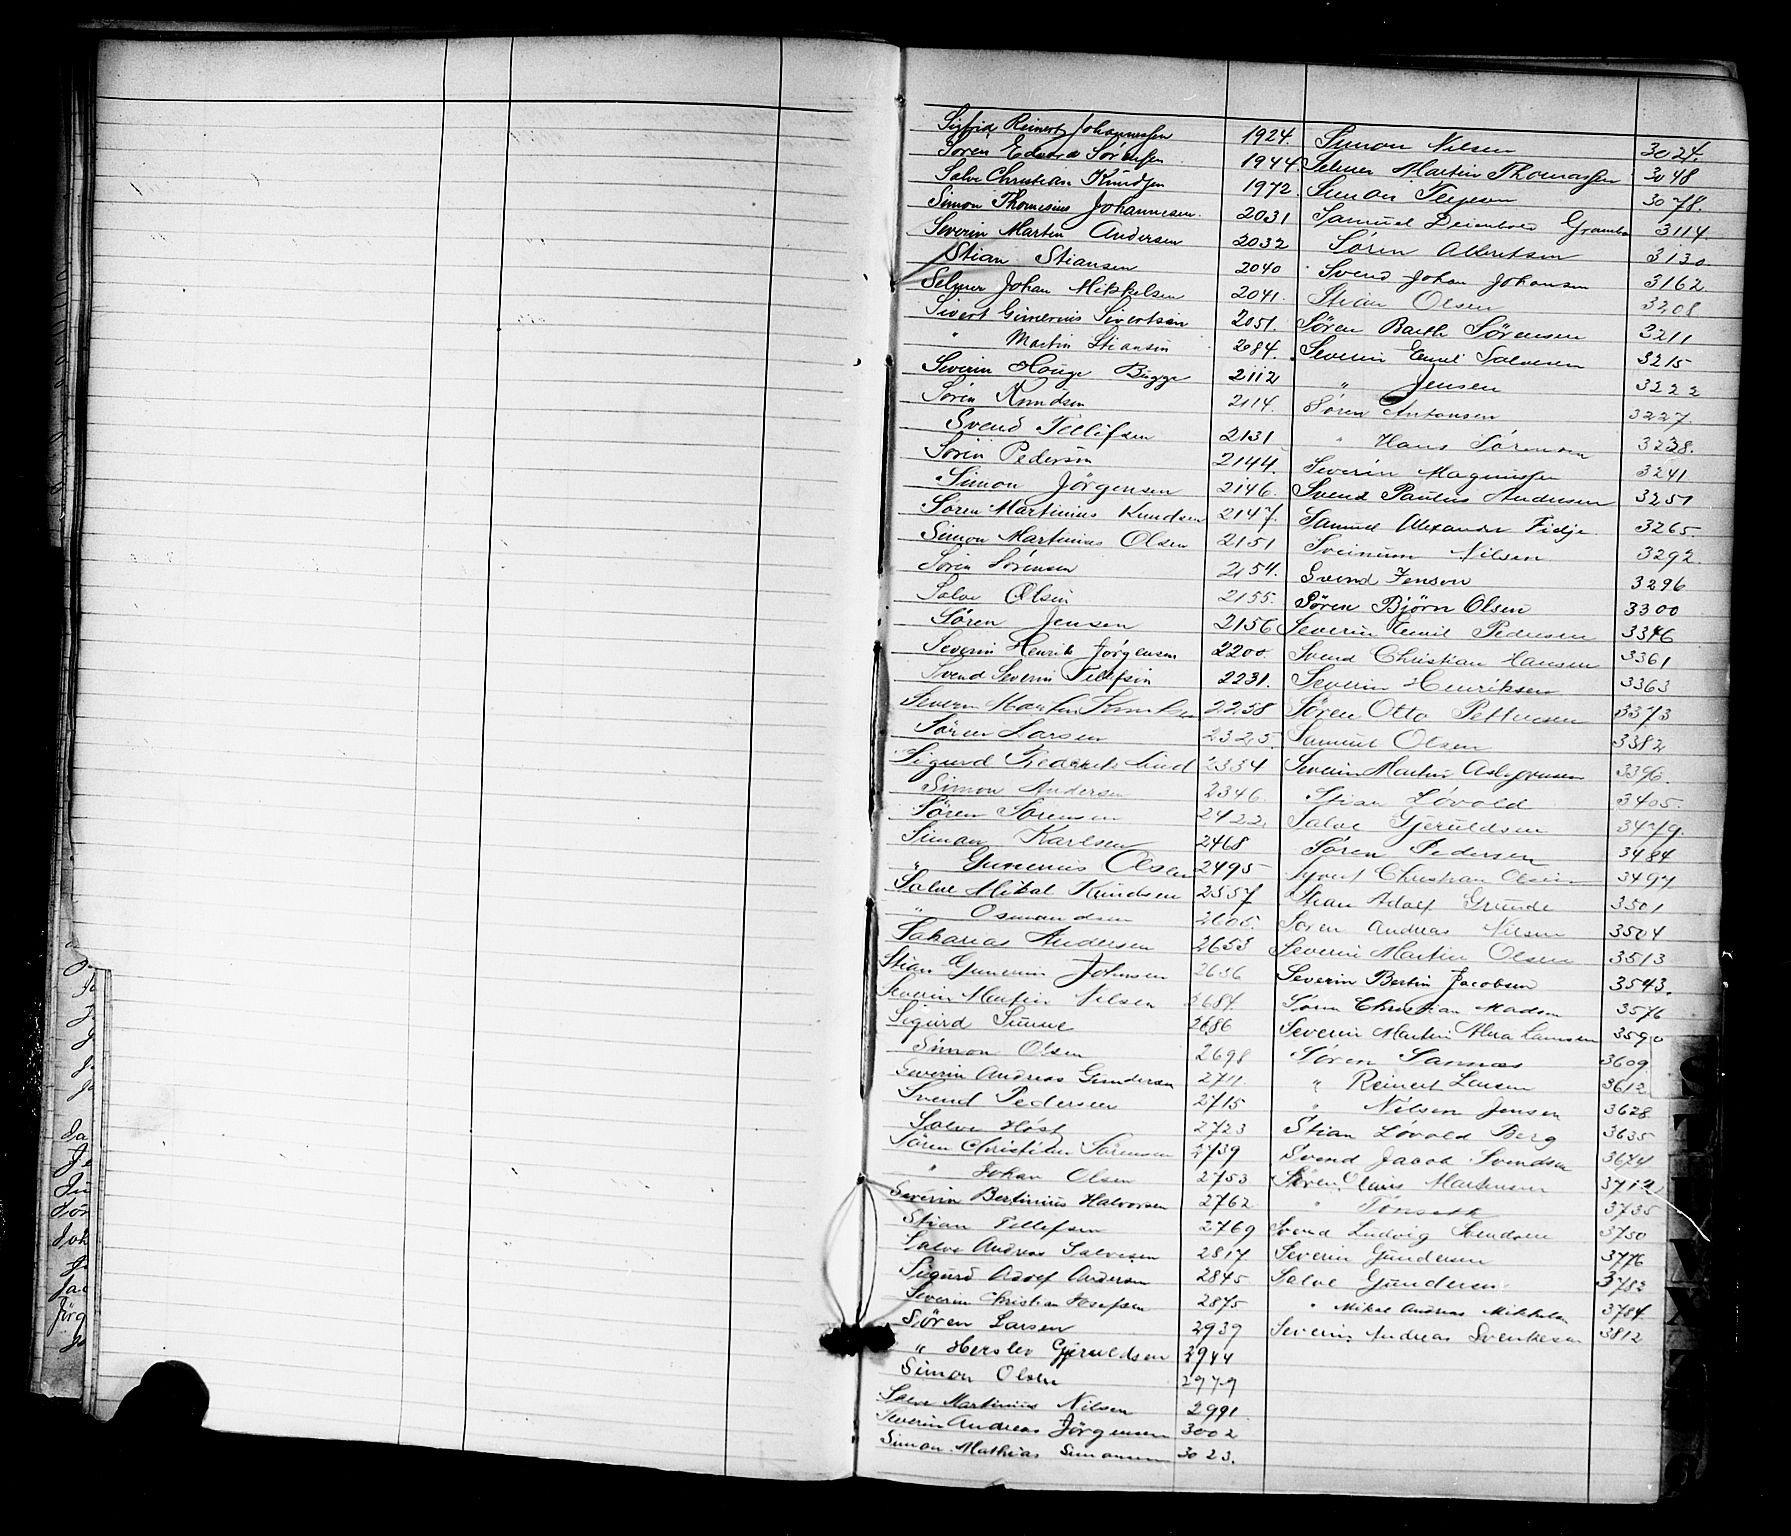 Sigfrid Reinert Johannessen 1924.
Sören Edvard Sörensen 1944
Salve Christian Knudsen 1972
Simon Thomesius Johannesen. 2031
Severin Martin Andersen 2032
Stian Stiansen 2040
Selmer Johan Mikkelsen 2041.
Sivert Gunerius Sivertsen 2051.
" Martin Stiansen 2084.
Severin Houge Bugge 2112
Sören Knudsen 2114.
Svend Tellefsen 2131
Sören Pedersen 2144.
Simon Jörgensen 2146.
Sören Martinius Knudsen 2147.
Simon Martinius Olsen 2151
Sören Sörensen 2154.
Salve Olsen 2155.
Sören Jensen 2156
Severin Henrik Jörgensen 2200.
Svend Severin Tellefsen 2231.
Severin Martin Knudsen 2258
Sören Larsen 2325.
Sigurd Frederik Lind 2334
Simon Andersen 2346.
Sören Sörensen 2422.
Simon Karlsen 2468
" Gunerius Olsen 2495
Salve Mikal Knudsen 2557
" Osmundsen 2605.
Sakarias Andersen 2653
Stian Gunerius Johnsen 2656
Severin Martin Nilsen 2684.
Sigurd Sunne 2686
Simon Olsen 2698
Severin Andreas Gundersen 2711.
Svend Pedersen 2715
Salve Höst 2723
Sören Christian Sörensen 2739
" Johan Olsen 2753
Severin Bertinius Halvorsen 2762
Stian Tellefsen 2769
Salve Andreas Salvesen 2817
Sigurd Adolf Andersen 2845
Severin Christian Josefsen 2875
Sören Larsen 2939
" Herslev Gjeruldsen 2944
Simon Olsen 2979
Salve Martinius Nilsen 2991.
Severin Andreas Jörgensen 3002
Simon Mathias Simonsen 3023.
Simon Nilsen 3024.
Selmer Martin Thomassen 3048
Simon Terjesen 3078.
Samuel 3114.
Sören Albertsen 3130
Svend Johan Johansen 3162
Stian Olsen 3208
Sören Barth Sörensen 3211
Severin Emil Salvesen 3215
" Jensen 3222
Sören Antonsen 3227.
" Hans Sörensen 3238.
Severin Magnussen 3241
Svend Paulus Andersen 3251
Samuel Alexander Fidje 3265.
Nilsen 3292.
Svend Jensen 3296
Sören Björn Olsen 3300
Severin Emil Pedersen 3346
Svend Christian Hansen 3361
Severin Henriksen 3363
Sören Otto Pettersen 3373
Samuel Olsen 3382
Severin Martin Asbjörnsen 3396.
Stian Lövold 3405.
Salve Gjeruldsen 3479.
Sören Pedersen 3484
Syvert Christian Olsen 3497
Stian Adolf Grunde 3501
Sören Andreas Nilsen 3504
Severin Martin Olsen 3513
Severin Bertin Jacobsen 3543.
Sören Christian Madsen 3576
Severin Martin 3590
Sören Sannæs 3609
" Reinert Larsen 3612
" Nilsen Jensen 3628
Stian Lövold Berg 3635
Svend Jacob Svendsen 3674
Sören Olaus Martinsen 3712
" Tönseth 3735
Svend Ludvig Svendsen 3750
Severin Gundersen 3776
Salve Gundersen 3782
" Mikal Andreas Mikkelsen 3784.
Severin Andreas Svenkesen 3812